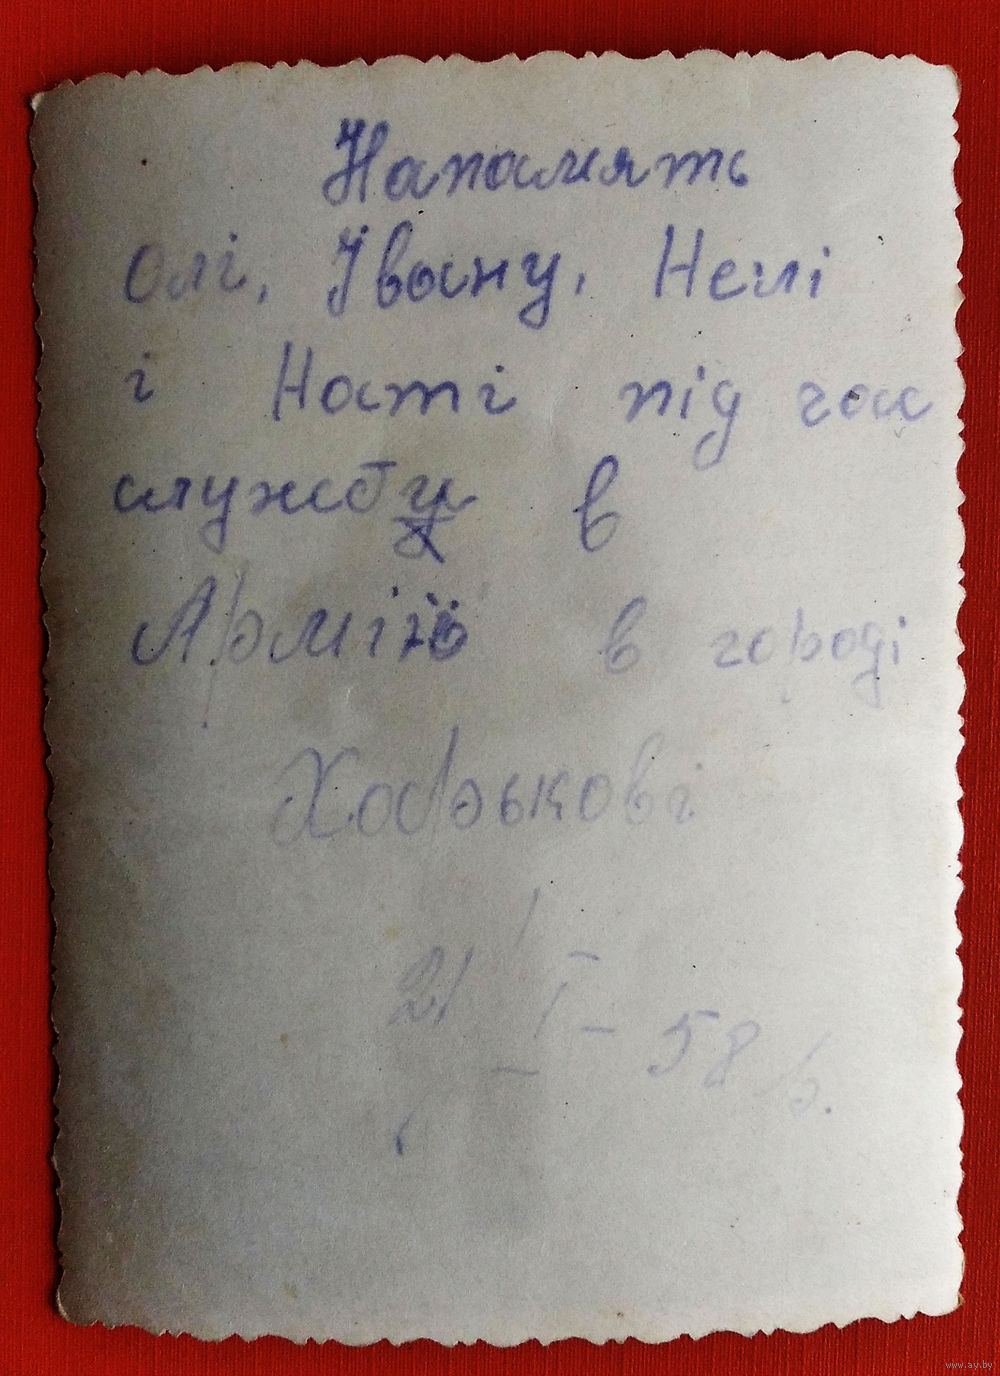 Напамять
Олі, Івану, Нелі
і Насті під час
службу в
Армії в городі
Харькові
21 I - 58 р.
www.ay.by